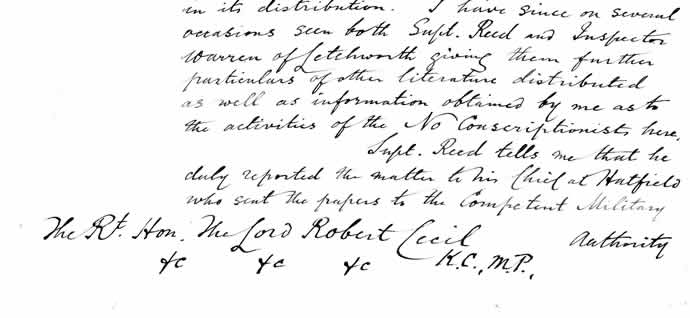 in its distribution. I have since on several
occasions seen both Supt. Reed and Inspector
Warren of Letchworth giving them further
particulars of other literature distributed
as well as information obtained by me as to
the activities of the No Conscriptionists here.
Supt. Reed tells me that he
duly reported the matter to his Chief at Hatfield
who sent the papers to the Competent Military
Authority
The Rt. Hon. The Lord Robert Cecil
&c &c &c K.C., M.P.,